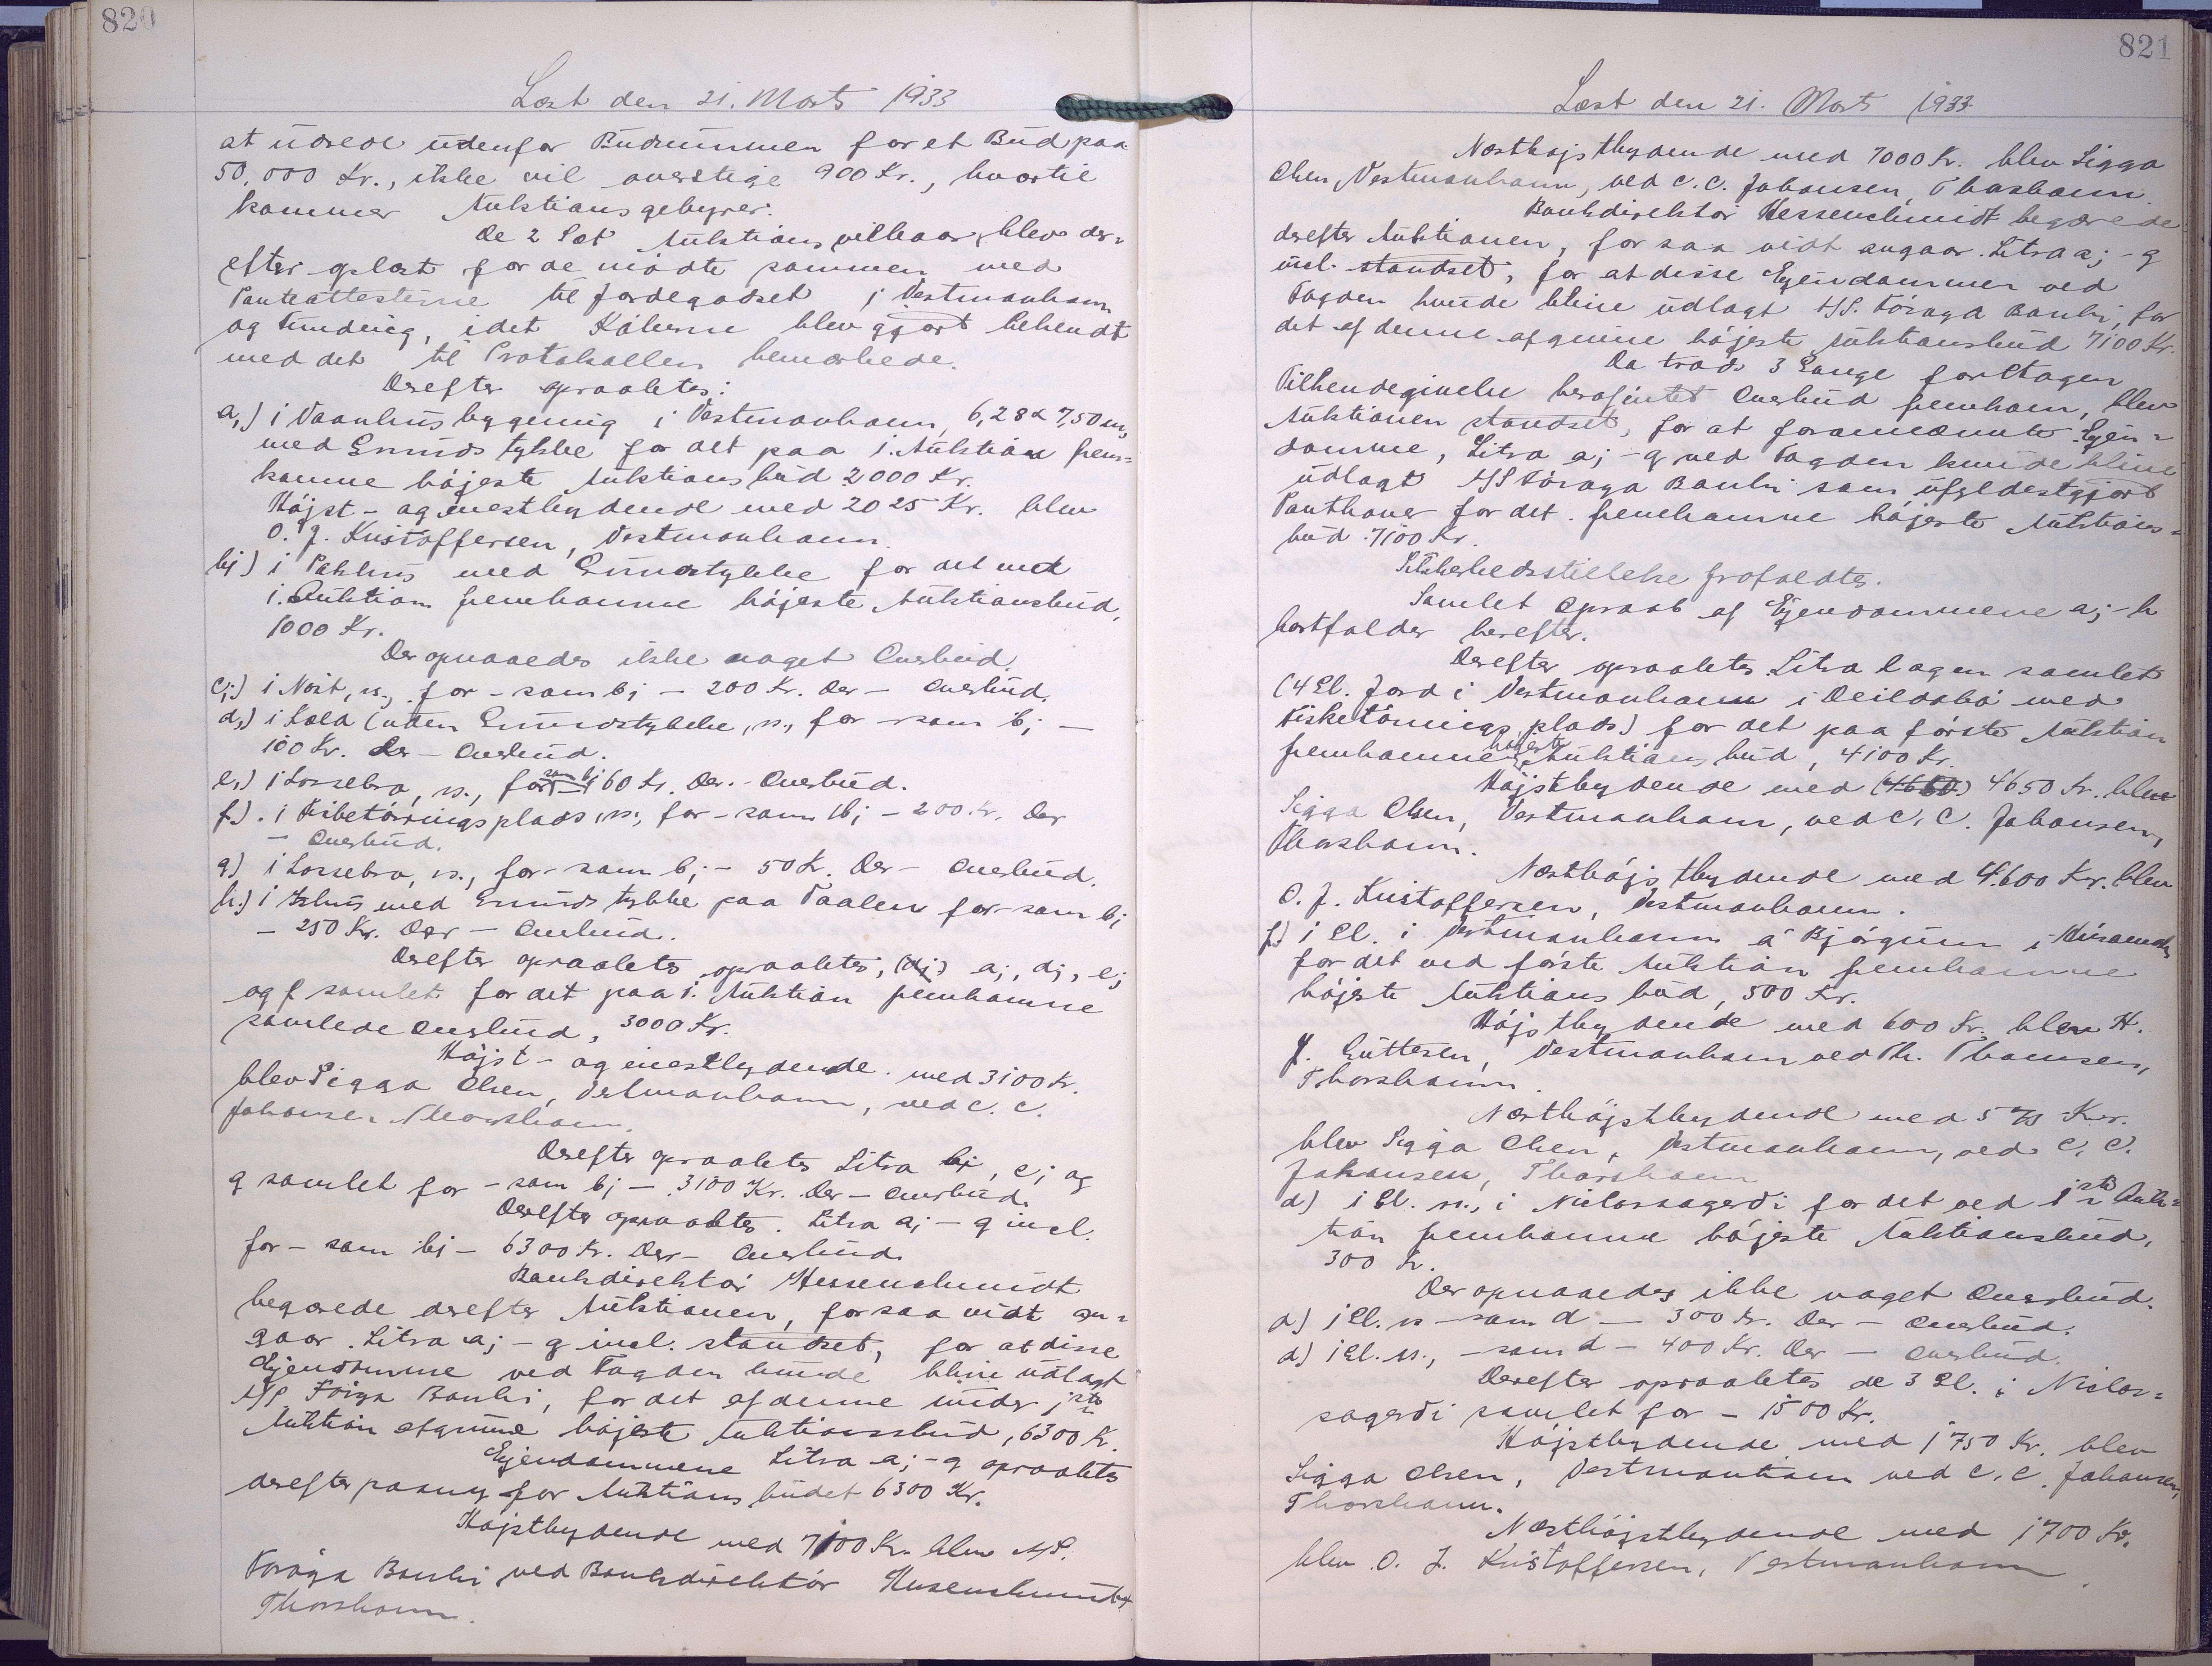 820
Læst den 21. Marts 1933
at udrede udenfor Budsummen for et Bud paa
50.000 Kr., ikke vil overstige 900 Kr., hvortil
kommer Auktionsgebyrer.
De 2 Sæt Auktionsvilkaar blev der=
efter oplæst for de mødte sammen med
Panteattesterne til Jordegodset i Vestmanhavn
og Indbering, idet Køberne blev gjort bekendt
med det til Protokollen bemærkede.
Derefter opraabtes:
a,) 1 Vaanhusbygning i Vestmanhavn, 6,28 x 7,50 m,
med Grundstykke for det paa 1. Auktion frem=
komne højeste Auktionsbud 2000 Kr.
Højst- og enestbydende med 2025 Kr. blev
O. J. Kristoffersen, Vestmanhavn.
b;) 1 Pakhus med Grundstykke for det ved
1. Auktion fremkomne højeste Auktionsbud,
1000 Kr.
Der opnaaedes ikke noget Overbud.
c;) 1 Nøst, n., for - som b; - 200 Kr. Der - Overbud.
d,) 1 Hæld (uden Grundstykke, n., for - som b; -
100 Kr. Der - Overbud.
e,) 1 Lossebro, n., for - som b; - 60 Kr. Der. - Overbud.
f,) 1 Fisketørringsplads, n., for - som b; - 200 Kr. Der
- Overbud.
g) 1 Lossebro, n., for - som b; - 50 Kr. Der - Overbud.
h,) 1 Ishus med Grundstykke paa Vaalen for - som b;
- 250 Kr. Der - Overbud.
Derefter opraabtes opraabtes, (d;) a;, d;, e;
og f samlet for det paa 1. Auktion fremkomne
samlede Overbud, 3000 Kr.
Højst- og enestbydende med 3100 Kr.
blev Sigga Olsen, Vestmanhavn, ved C. C.
Johansen Thorshavn.
Derefter opraabtes Litra b;, c; og
g samlet for - som b; - 3100 Kr. Der - Overbud.
Derefter opraabtes Litra a; - g incl.
for - som b; - 6300 Kr. Der - Overbud.
Bankdirektør Hessenschmidt
begærede derefter Auktionen, forsaavidt an=
gaar Litra a; - g incl. standset, for at disse
Ejendomme ved Fogden kunde blive udlagt
A/S Føroya Banki, for det af denne under 1ste
Auktion afgivne højeste Auktionsbud, 6300 Kr.
Ejendommene Litra a; - g opraabtes
derefter paany for Auktionsbudet 6300 Kr.
Højstbydende med 7100 Kr. blev A/S.
Føroya Banki ved Bankdirektør Hessenschmidt
Thorshavn.
821
Læst den 21. Marts 1933
Næsthøjstbydende med 7000 Kr. blev Sigga
Olsen, Vestmanhavn, ved C. C. Johansen, Thorshavn.
Bankdirektør Hessenschmidt begærede
derefter Auktionen, for saa vidt angaar Litra a; - g
incl. standset, for at disse Ejendommen ved
Fogden kunde blive udlagt A/S. Føroya Banki, for
det af denne afgivne højeste Auktionsbud 7100 Kr.
Da trods 3 Gange foretagen
Tilkendegivelse herof intet Overbud fremkom, blev
Auktionen standset, for at forannævnte Ejen=
domme, Litra a; - g ved Fogden kunde blive
udlagt A/S Føroya Banki som ufyldestgjort
Panthaver for det fremkomne højeste Auktions=
bud 7100 Kr.
Sikkerhedsstillelse frafaldtes.
Samlet Opraab af Ejendommene a; - h
bortfalder herefter.
Derefter opraabtes Litra l agen samlet
(4 Gl. Jord i Vestmanhavn i Deildabø med
Fisketørringsplads) for det paa første Auktion
fremkomne højeste Auktionsbud, 4100 Kr.
Højstbydende med (4660) 4650 Kr. blev
Sigga Olsen, Vestmanhavn, ved C. C. Johansen,
Thorshavn.
Næsthøjstbydende med 4.600 Kr. blev
O. J. Kristoffersen, Vestmanhavn.
f) 1 Gl. i Vestmanhavn á Bjørgum i
for det ved første Auktion fremkomne
højeste Auktionsbud, 500 Kr.
Højstbydende med 600 Kr. blev H.
J. Guttesen, Vestmanhavn ved Th. Thomsen,
Thorshavn.
Næsthøjstbydende med 575 Kr.
blev Sigga Olsen, Vestmanhavn, ved C. C.
Johansen, Thorshavn
d) 1 Gl. n., i Niclassagerdi for det ved 1ste Auk=
tion fremkomne højeste Auktionsbud,
300 Kr.
Der opnaaedes ikke noget Overbud.
d) 1 Gl. n - som d - 300 Kr. Der - Overbud.
d) 1 Gl. n., - som d - 400 Kr. Der - Overbud.
Derefter opraabtes de 3 Gl. i Niclas=
sagerdi samlet for - 1500 Kr.
Højstbydende med 1750 Kr. blev
Sigga Olsen, Vestmanhavn ved C. C. Johansen,
Thorshavn.
Næsthøjstbydende med 1700 Kr.
blev O. J. Kristoffersen, Vestmanhavn